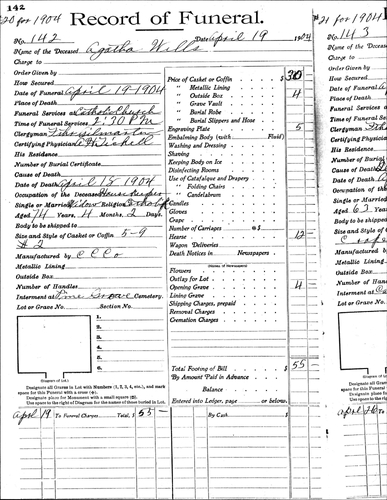 142
20 for 1904
Record of Funeral.
No. 142 Date April 19 1904
Name of the Deceased Agatha Wells
Charge to
Order Given by
How Secured
Date of Funeral April 19-1904
Place of Death
Funeral Services at Catholic Church
Time of Funeral Services 2:30 P.M.
Clergyman
Certifying Physician
His Residence
Number of Burial Certificate
Cause of Death
Date of Death April 18 1904
Occupation of the Deceased House keeper
Single or Married Widow Religion Catholic
Aged 74 Years 4 Months 2 Days
Body to be shipped to
Size and Style of Casket or Coffin 5-9
# 2
Manufactured by C C Co
Metallic Lining
Outside Box
Number of Handles
Interment at Pine Grove Cemetery.
Lot or Grave No. Section No.
1.
2.
3.
4.
5.
6.
(Diagram of Lot.)
Designate all Graves in Lot with Numbers (1, 2, 3, 4, etc.), and mark
space for this Funeral with a cross (+).
Designate place for Monument with a small square (□).
Use space to the right of Diagram for the names of those buried in Lot.
Price of Casket or Coffin $ 30
" Metallic Lining
" Outside Box 4
" Grave Vault
" Burial Robe
" Burial Slippers and Hose
Engraving Plate
Embalming Body (with Fluid) 5
Washing and Dressing
Shaving
Keeping Body on Ice
Disinfecting Rooms
Use of Catafalque and Drapery
" Folding Chairs
" Candelabrum
Candles
Gloves
Crape
Number of Carriages @ $
Hearse 12
Wagon Deliveries
Death Notices in Newspapers
(Names of Newspapers)
Flowers
Outlay for Lot
Opening Grave 4
Lining Grave
Shipping Charges, prepaid
Removal Charges
Cremation Charges
Total Footing of Bill $ 55
By Amount Paid in Advance
Balance
Entered into Ledger, page or below.
April 19 To Funeral Charges Total, $ 55 By Cash
#21 for 1904
No. 143
Name of the Deceased
Charge to
Order Given by
How Secured
Date of Funeral
Place of Death
Funeral Services
Time of Funeral
Clergyman
Certifying Physician
His Residence
Number of Burial
Cause of Death
Date of Death
Occupation of the
Single or Married
Aged 62 Years
Body to be shipped
Size and Style of
Manufactured by
Metallic Lining
Outside Box
Number of Handles
Interment at
Lot or Grave No.
(Diagram of Lot.)
Designate all Graves
space for this Funeral
Designate place for
Use space to the right
April To Funeral